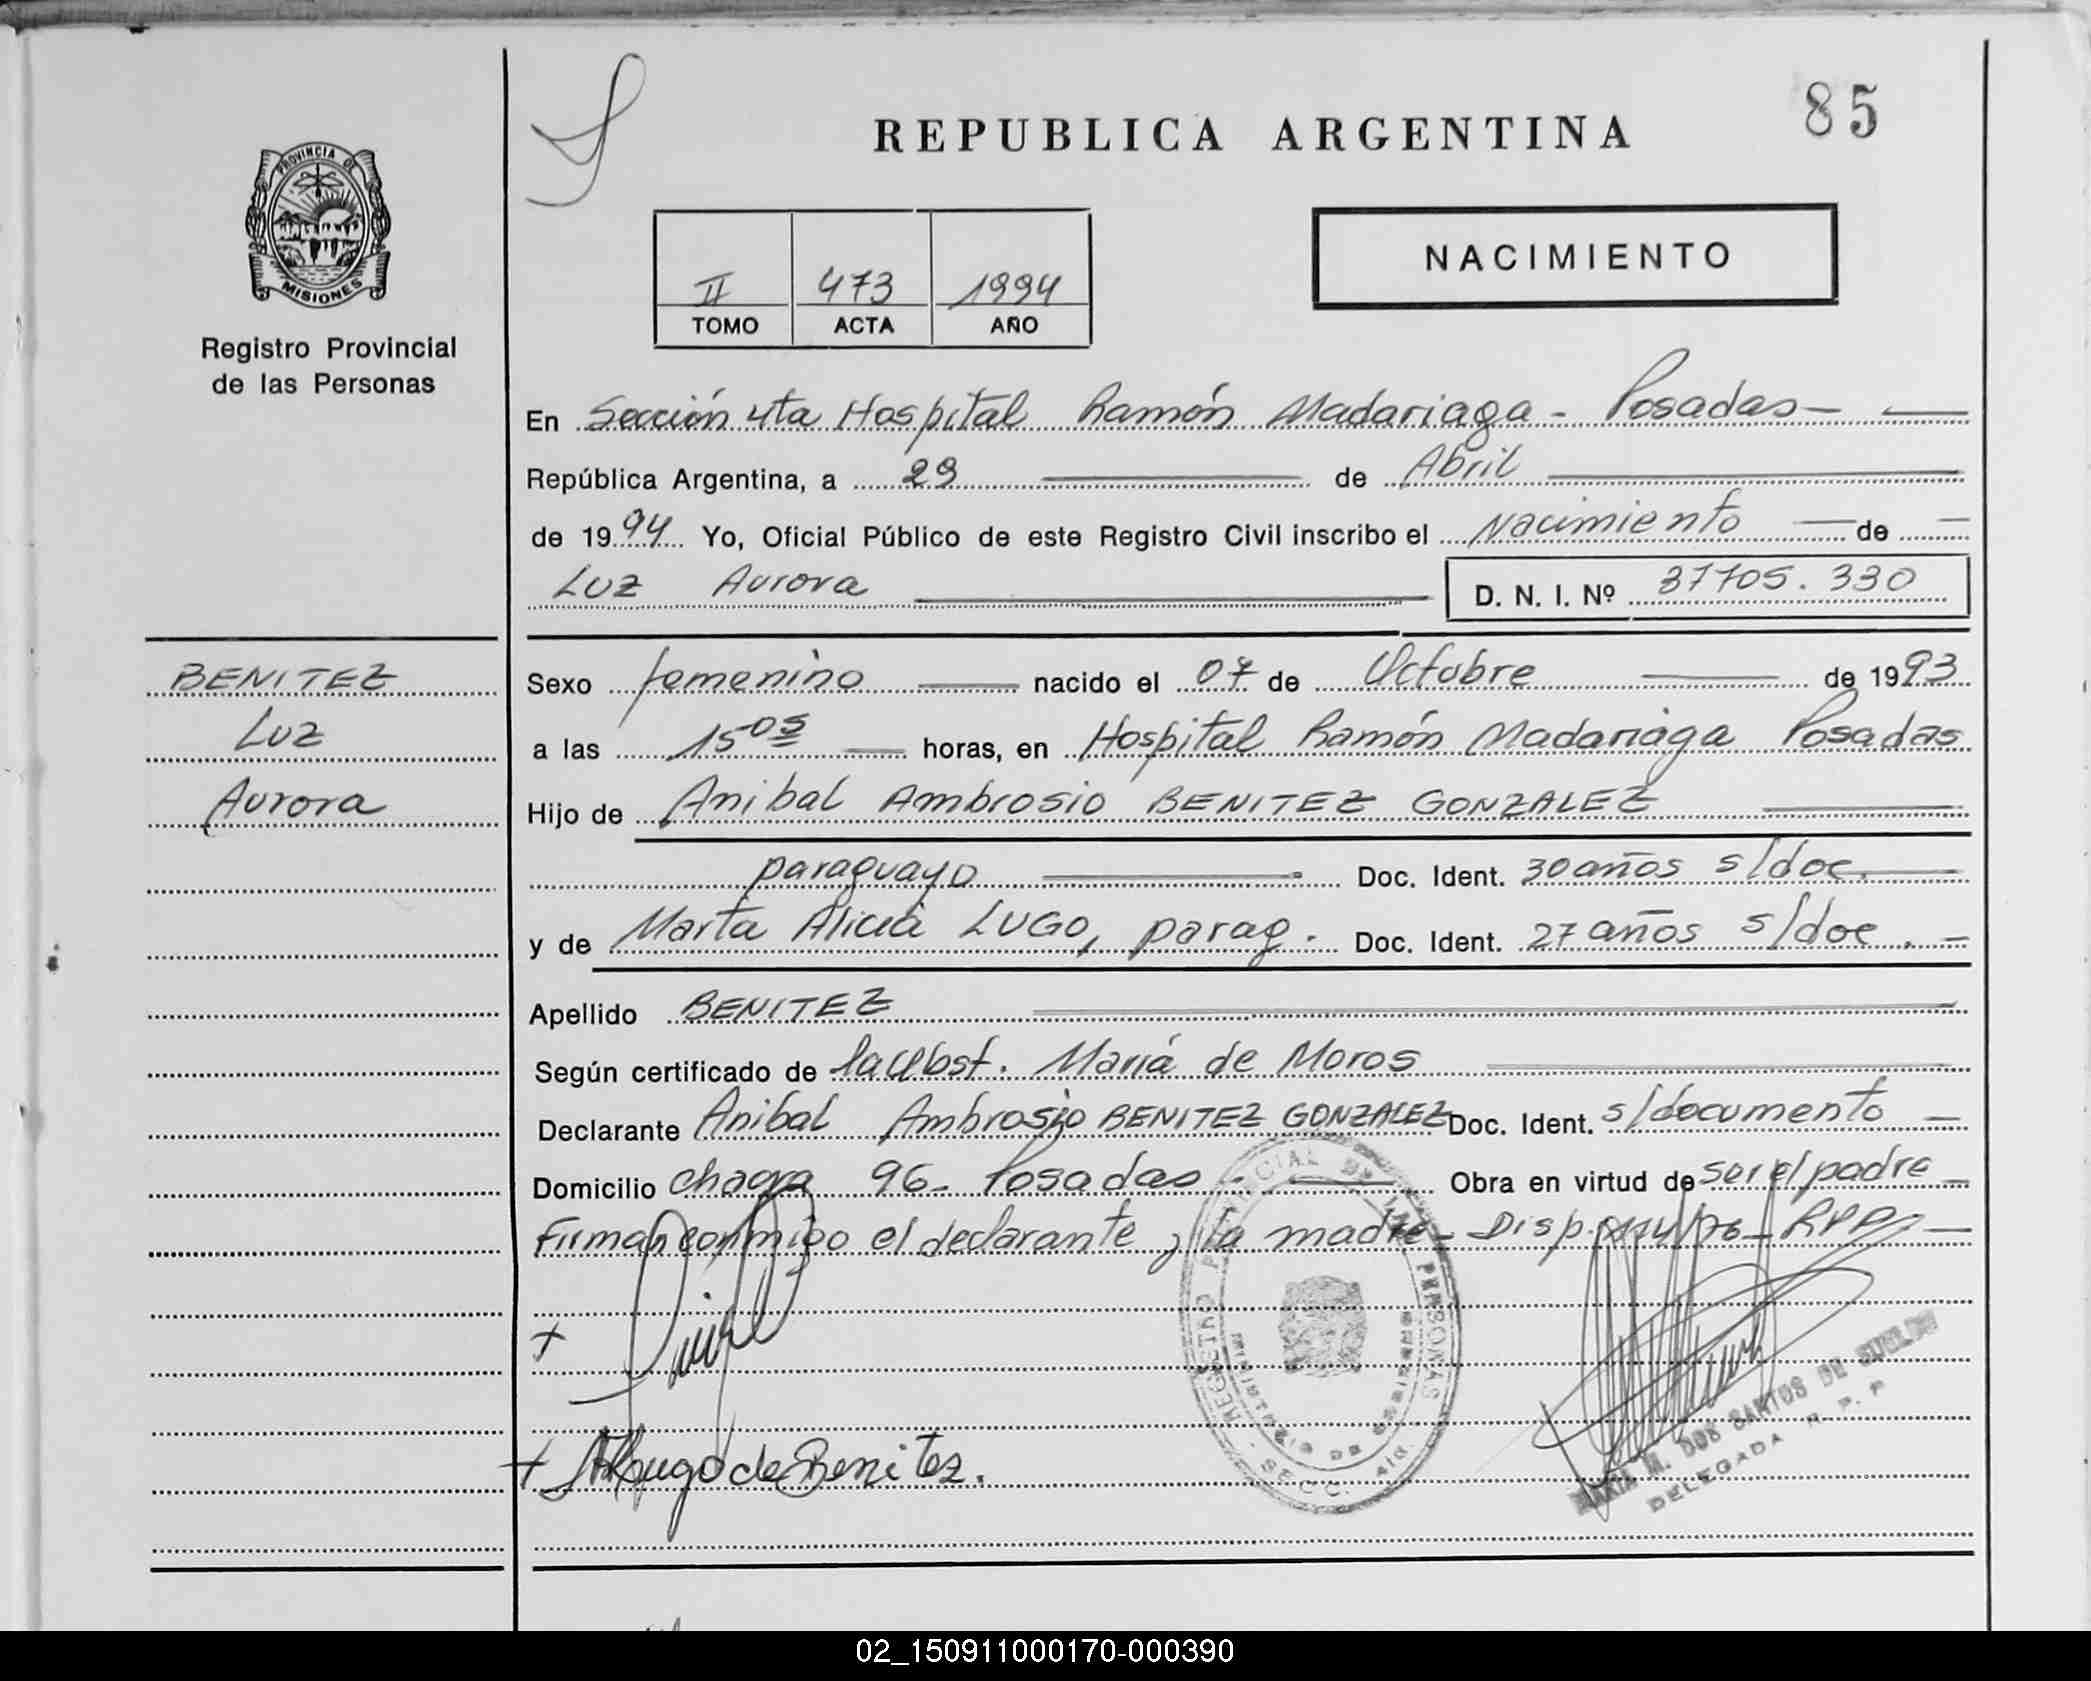 85
REPUBLICA ARGENTINA
PROVINCIA DE
MISIONES
Registro Provincial
de las Personas
II 473 1994
TOMO ACTA AÑO
NACIMIENTO
En Sección 4ta Hospital Ramón Madariaga - Posadas -
República Argentina, a 29 de Abril
de 1994 Yo, Oficial Público de este Registro Civil inscribo el Nacimiento de
Luz Aurora D. N. I. Nº 37705.330
BENITEZ
Luz
Aurora
Sexo femenino nacido el 07 de Octubre de 1993
a las 15-05 horas, en Hospital Ramón Madariaga Posadas
Hijo de Anibal Ambrosio BENITEZ GONZALEZ
paraguayo Doc. Ident. 30 años s/doc.
y de Marta Alicia LUGO, parag. Doc. Ident. 27 años s/doc. -
Apellido BENITEZ
Según certificado de la Obst. María de Moros
Declarante Anibal Ambrosio BENITEZ GONZALEZ Doc. Ident. s/documento
Domicilio chacra 96 - Posadas - Obra en virtud de ser el padre
Firman conmigo el declarante y la madre - Disp. RPP
REGISTRO PROVINCIAL DE LAS PERSONAS
MINISTERIO DE GOBIERNO
SECC. 4ta
+
+ Lugo de Benitez.
MARIA M. DOS SANTOS DE
DELEGADA R. P. P.
02_150911000170-000390